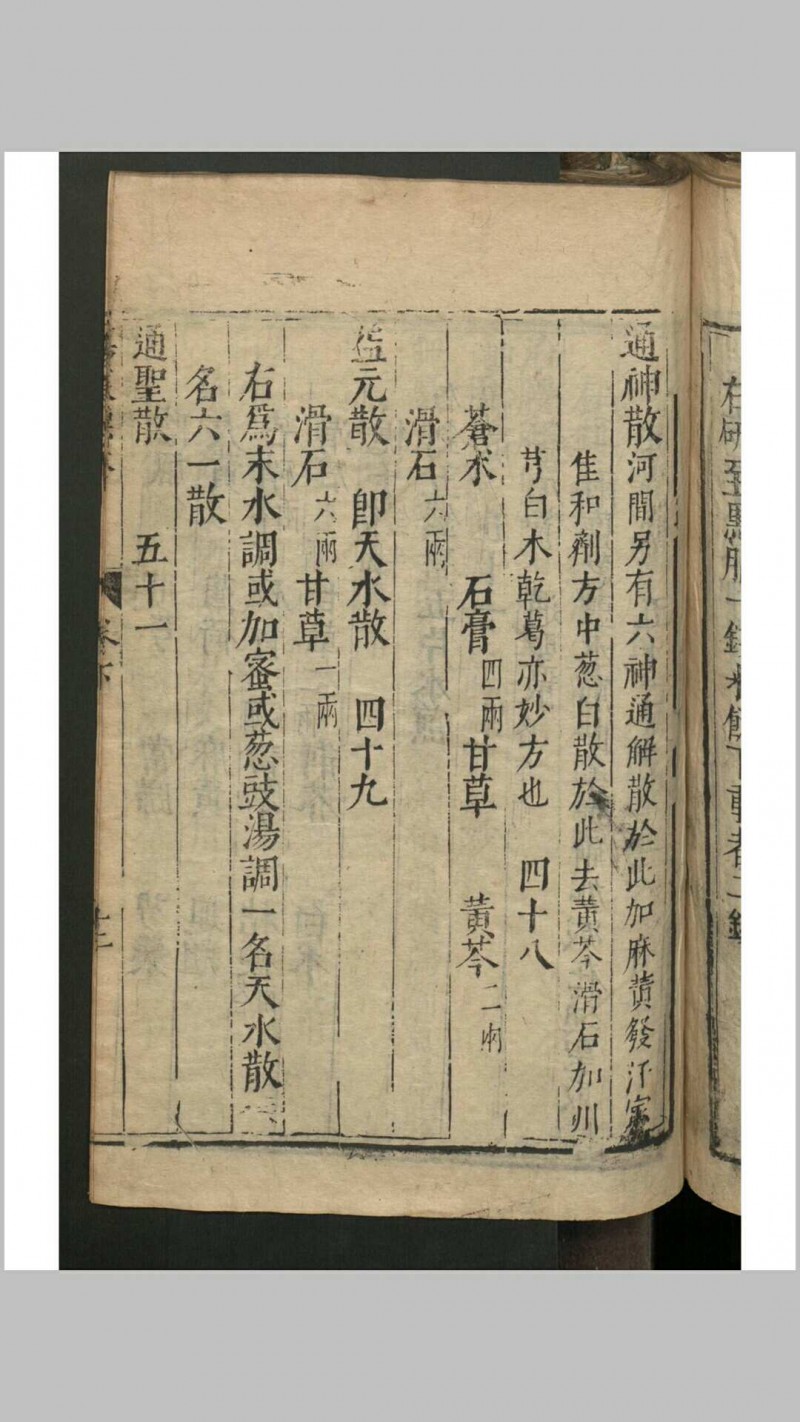 右研至點服一錢
通神散河間另有六神通解散於此加麻黄發汗
隹和劑方中葱白散於此去黄芩滑石加川
芎白木乾葛亦妙方也　四十八
蒼术　石膏四兩甘草　黄芩二兩
滑石六兩
益元散　即天水散　四十九
滑石六兩甘草一兩
右爲末水調或加蜜或葱豉湯調一名天水散
名六一散
通聖散　五十一